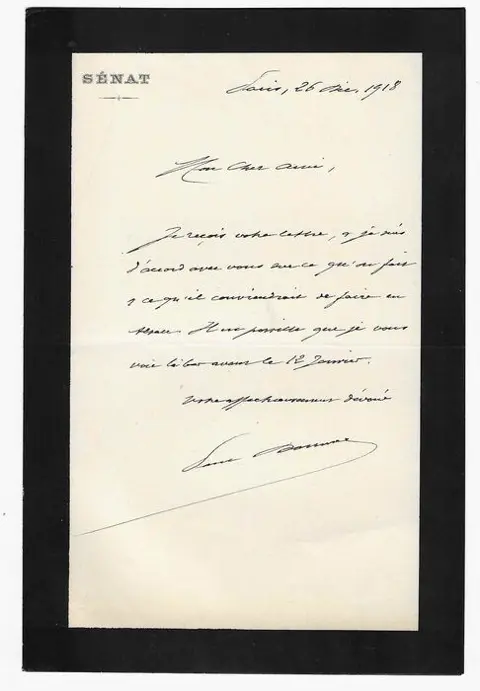 SÉNAT
Paris, 26 Déc. 1918
Mon cher ami,
Je reçois votre lettre, & je suis
d'accord avec vous sur ce qu'on fait
& ce qu'il conviendrait de faire en
Alsace. Il est possible que je vous
voie là-bas avant le 12 Janvier.
Votre affectueusement dévoué